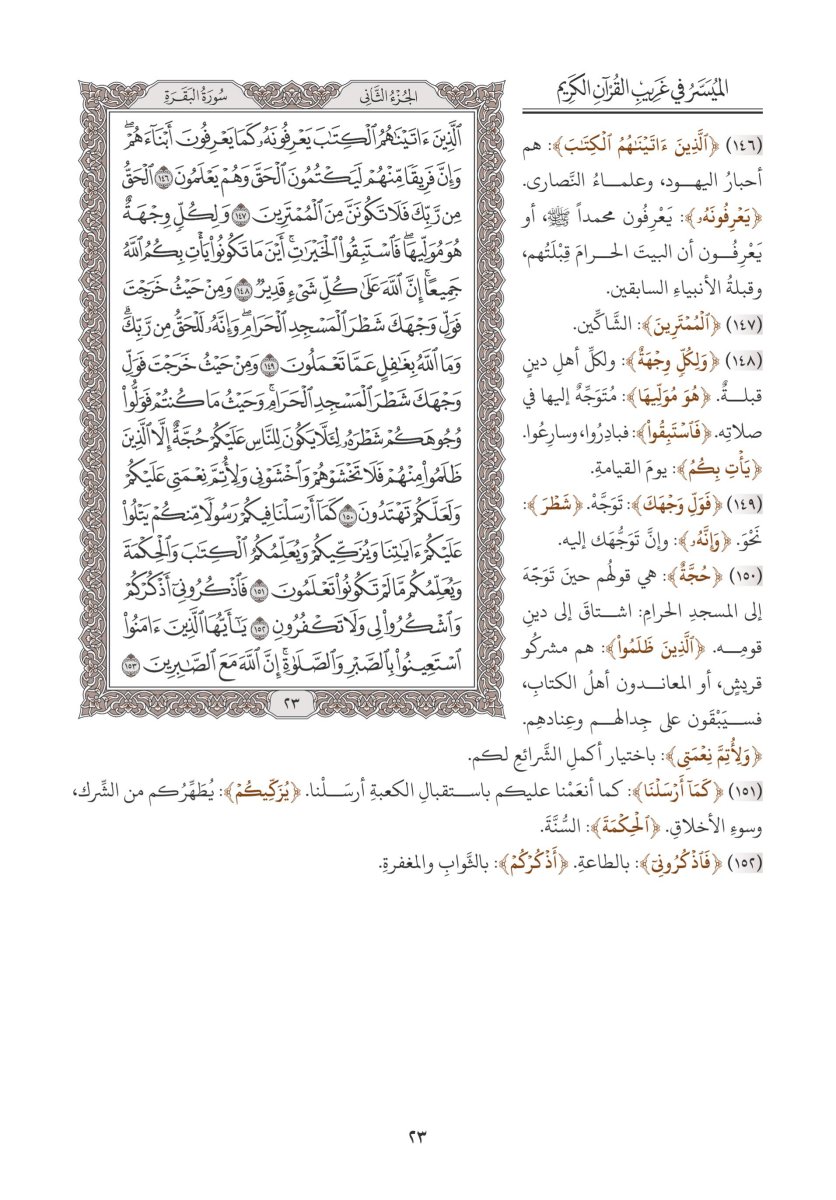 الميسر في غريب القرآن الكريم
الجزء الثاني
سورة البقرة
ٱلَّذِينَ ءَاتَيْنَٰهُمُ ٱلْكِتَٰبَ يَعْرِفُونَهُۥ كَمَا يَعْرِفُونَ أَبْنَآءَهُمْ ۖ
وَإِنَّ فَرِيقًا مِّنْهُمْ لَيَكْتُمُونَ ٱلْحَقَّ وَهُمْ يَعْلَمُونَ ١٤٦ ٱلْحَقُّ
مِن رَّبِّكَ فَلَا تَكُونَنَّ مِنَ ٱلْمُمْتَرِينَ ١٤٧ وَلِكُلٍّ وِجْهَةٌ
هُوَ مُوَلِّيهَا ۖ فَٱسْتَبِقُوا۟ ٱلْخَيْرَٰتِ ۚ أَيْنَ مَا تَكُونُوا۟ يَأْتِ بِكُمُ ٱللَّهُ
جَمِيعًا ۚ إِنَّ ٱللَّهَ عَلَىٰ كُلِّ شَىْءٍ قَدِيرٌ ١٤٨ وَمِنْ حَيْثُ خَرَجْتَ
فَوَلِّ وَجْهَكَ شَطْرَ ٱلْمَسْجِدِ ٱلْحَرَامِ ۖ وَإِنَّهُۥ لَلْحَقُّ مِن رَّبِّكَ ۗ
وَمَا ٱللَّهُ بِغَٰفِلٍ عَمَّا تَعْمَلُونَ ١٤٩ وَمِنْ حَيْثُ خَرَجْتَ فَوَلِّ
وَجْهَكَ شَطْرَ ٱلْمَسْجِدِ ٱلْحَرَامِ ۚ وَحَيْثُ مَا كُنتُمْ فَوَلُّوا۟
وُجُوهَكُمْ شَطْرَهُۥ لِئَلَّا يَكُونَ لِلنَّاسِ عَلَيْكُمْ حُجَّةٌ إِلَّا ٱلَّذِينَ
ظَلَمُوا۟ مِنْهُمْ فَلَا تَخْشَوْهُمْ وَٱخْشَوْنِى وَلِأُتِمَّ نِعْمَتِى عَلَيْكُمْ
وَلَعَلَّكُمْ تَهْتَدُونَ ١٥٠ كَمَآ أَرْسَلْنَا فِيكُمْ رَسُولًا مِّنكُمْ يَتْلُوا۟
عَلَيْكُمْ ءَايَٰتِنَا وَيُزَكِّيكُمْ وَيُعَلِّمُكُمُ ٱلْكِتَٰبَ وَٱلْحِكْمَةَ
وَيُعَلِّمُكُم مَّا لَمْ تَكُونُوا۟ تَعْلَمُونَ ١٥١ فَٱذْكُرُونِىٓ أَذْكُرْكُمْ
وَٱشْكُرُوا۟ لِى وَلَا تَكْفُرُونِ ١٥٢ يَٰٓأَيُّهَا ٱلَّذِينَ ءَامَنُوا۟
ٱسْتَعِينُوا۟ بِٱلصَّبْرِ وَٱلصَّلَوٰةِ ۚ إِنَّ ٱللَّهَ مَعَ ٱلصَّٰبِرِينَ ١٥٣
٢٣
(١٤٦) ﴿ٱلَّذِينَ ءَاتَيْنَٰهُمُ ٱلْكِتَٰبَ﴾: هم
أحبارُ اليهود، وعلماءُ النَّصارى.
﴿يَعْرِفُونَهُۥ﴾: يَعْرِفُون محمداً ﷺ، أو
يَعْرِفُون أن البيتَ الحرامَ قِبْلَتُهم،
وقبلةُ الأنبياءِ السابقين.
(١٤٧) ﴿ٱلْمُمْتَرِينَ﴾: الشَّاكِّين.
(١٤٨) ﴿وَلِكُلٍّ وِجْهَةٌ﴾: ولكلِّ أهلِ دينٍ
قبلةٌ. ﴿هُوَ مُوَلِّيهَا﴾: مُتَوَجِّهٌ إليها في
صلاتِه. ﴿فَٱسْتَبِقُوا۟﴾: فبادِرُوا، وسارِعُوا.
﴿يَأْتِ بِكُمُ﴾: يومَ القيامةِ.
(١٤٩) ﴿فَوَلِّ وَجْهَكَ﴾: تَوَجَّهْ. ﴿شَطْرَ﴾:
نَحْوَ. ﴿وَإِنَّهُۥ﴾: وإنَّ تَوَجُّهَك إليه.
(١٥٠) ﴿حُجَّةٌ﴾: هي قولُهم حينَ تَوَجَّهَ
إلى المسجدِ الحرامِ: اشتاقَ إلى دينِ
قومِه. ﴿ٱلَّذِينَ ظَلَمُوا۟﴾: هم مشركُو
قريشٍ، أو المعاندون أهلُ الكتابِ،
فسيَبْقَون على جِدالهم وعِنادِهم.
﴿وَلِأُتِمَّ نِعْمَتِى﴾: باختيار أكملِ الشَّرائعِ لكم.
(١٥١) ﴿كَمَآ أَرْسَلْنَا﴾: كما أنعَمْنا عليكم باستقبالِ الكعبةِ أرسَلْنا. ﴿يُزَكِّيكُمْ﴾: يُطَهِّرُكم من الشِّرك،
وسوءِ الأخلاقِ. ﴿ٱلْحِكْمَةَ﴾: السُّنَّةَ.
(١٥٢) ﴿فَٱذْكُرُونِىٓ﴾: بالطاعةِ. ﴿أَذْكُرْكُمْ﴾: بالثَّوابِ والمغفرةِ.
٢٣